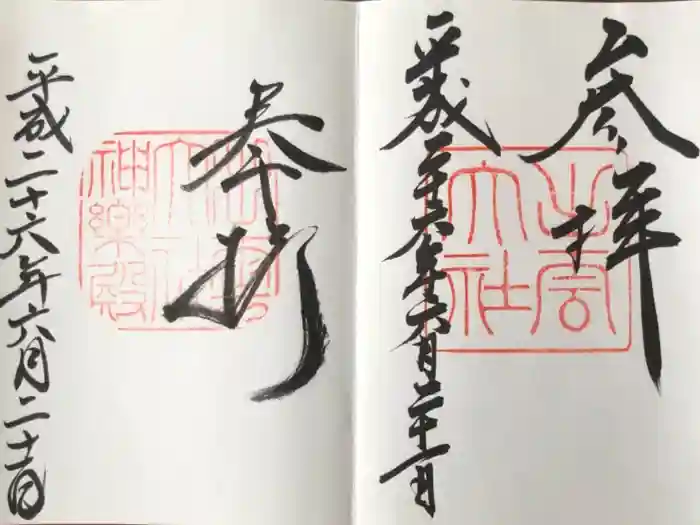 参拝
平成二十六年六月二十一日
出雲
大社
奉拝
平成二十六年六月二十一日
出雲
大社
神樂殿